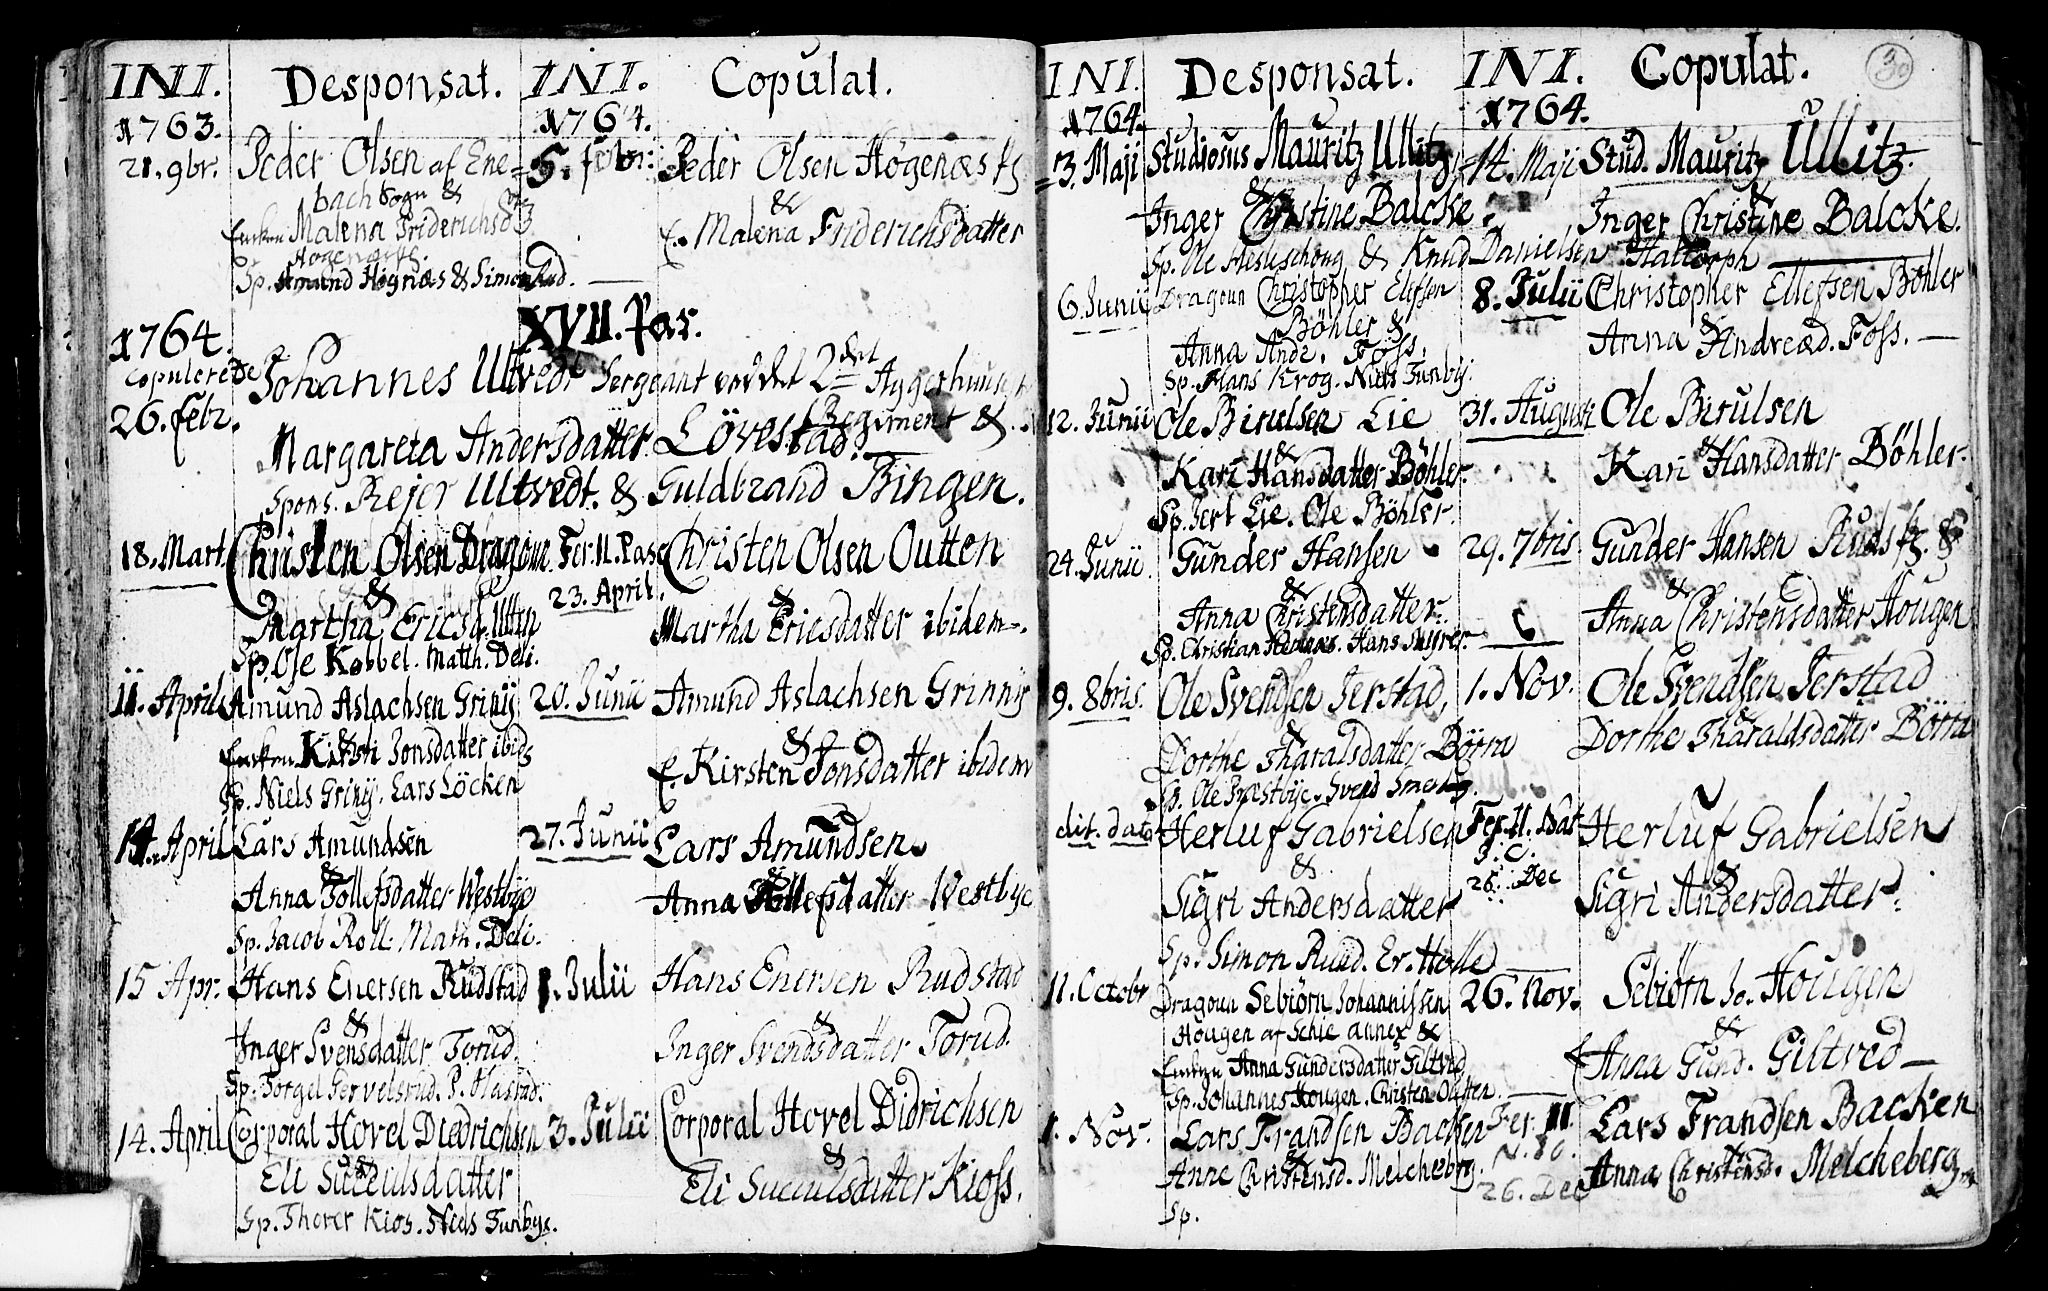 INI. Desponsat. INI. Copulat.
1763. 1764.
21. 9br. Peder Olsen af Ene= 5. febr: Peder Olsen Högenæs fz
bach Sogn & &
Enken Malena Friderichsd E. Malena Friderichsdatter
Högenæss.
Sp. Amund Högnæs & Simon
1764. XVII. Par.
Copulerede Johannes Ultvedt Sergeant ved det 2det Aggerhuus
26. febr. Regiment &
Margareta Andersdatter Lövestad.
Spons. Rejer Ultvedt. & Guldbrand Bingen.
18. Mart. Christen Olsen Dragoun. Fer. II. Pasc Christen Olsen Outten
& 23. April. &
Martha Ericsd. Utten Martha Ericsdatter ibidem.
Sp. Ole Kobbel. Matth. Deli.
11. April Amund Aslachsen Grinij 20. Junii Amund Aslachsen Grinnij
& &
Enken Kirsti Jonsdatter ibid E. Kirsten Jonsdatter ibidem
Sp. Niels Grinij. Lars Löcken
14. April Lars Amundsen 27. Junii Lars Amundsen
& &
Anna Tollefsdatter Westbye Anna Tollefsdatter Westbye
Sp. Jacob Roll. Math. Deli.
15 Apr. Hans Enersen Rudstad 1. Julii Hans Enersen Rudstad
& &
Inger Svensdatter Torud. Inger Svendsdatter Torud.
Sp. Torgel P. Hastad.
14. April Corporal Hovel Diedrichsen 3. Julii Corporal Hovel Didrichsen
& &
Eli Suculsdatter Eli Suculsdatter Kioss.
Sp. Thorer Kios. Niels Tunbye.
30
INI. Desponsat. INI. Copulat.
1764. 1764.
3. Maji Studiosus Mauritz Ullitz 14. Maji Stud. Mauritz Ullitz.
& &
Inger Christine Balcke. Inger Christine Balcke.
Sp. Ole & Knud Danielsen Haltorph
6. Junii Dragoun Christopher Elefsen 8. Julii Christopher Ellefsen Böhler
Böhler & &
Anna Andr. Foss. Anna Andreæd. Foss.
Sp. Hans Krog. Niels Tunbÿ.
12. Junii Ole Birulsen Lie 31. Augusti Ole Birulsen
& &
Kari Hansdatter Böhler. Kari Hansdatter Böhler.
Sp. Jert Lie. Ole Böhler.
24. Junii. Gunder Hansen 29. 7bris Gunder Hansen Ruds fz. &
& &
Anna Christensdatter. Anna Christensdatter Hougen
Sp. Christian Hans Myrer.
9. 8bris. Ole Svendsen Jerstad, 1. Nov. Ole Svendsen Jerstad
&
Dorthe Tharalsdatter Börra Dorthe Tharaldsdatter Börra
Sp. Ole Præstbye. Svend
dit. dat. Herluf Gabrielsen Fer. II. Nat. Herluf Gabrielsen
& J. C. &
26. Dec
Sigri Andersdatter Sigri Andersdatter.
Sp. Simon Ruud. Er. Holle
11. Octobr Dragoun Sebiörn Johannissen 26. Nov. Sebiörn Jo. Hougen
Hougen af Schie annex & &
Enken Anna Gundersdatter Giltved E. Anna Gund. Giltved
Sp. Johannes Hougen. Christen Outten.
1. Nov. Lars Frandsen Backen Fer. III. Lars Frandsen Backen
& N. &
Anne Christensd. Melcheberg 26. Dec Anna Christensd. Melcheberg
Sp.